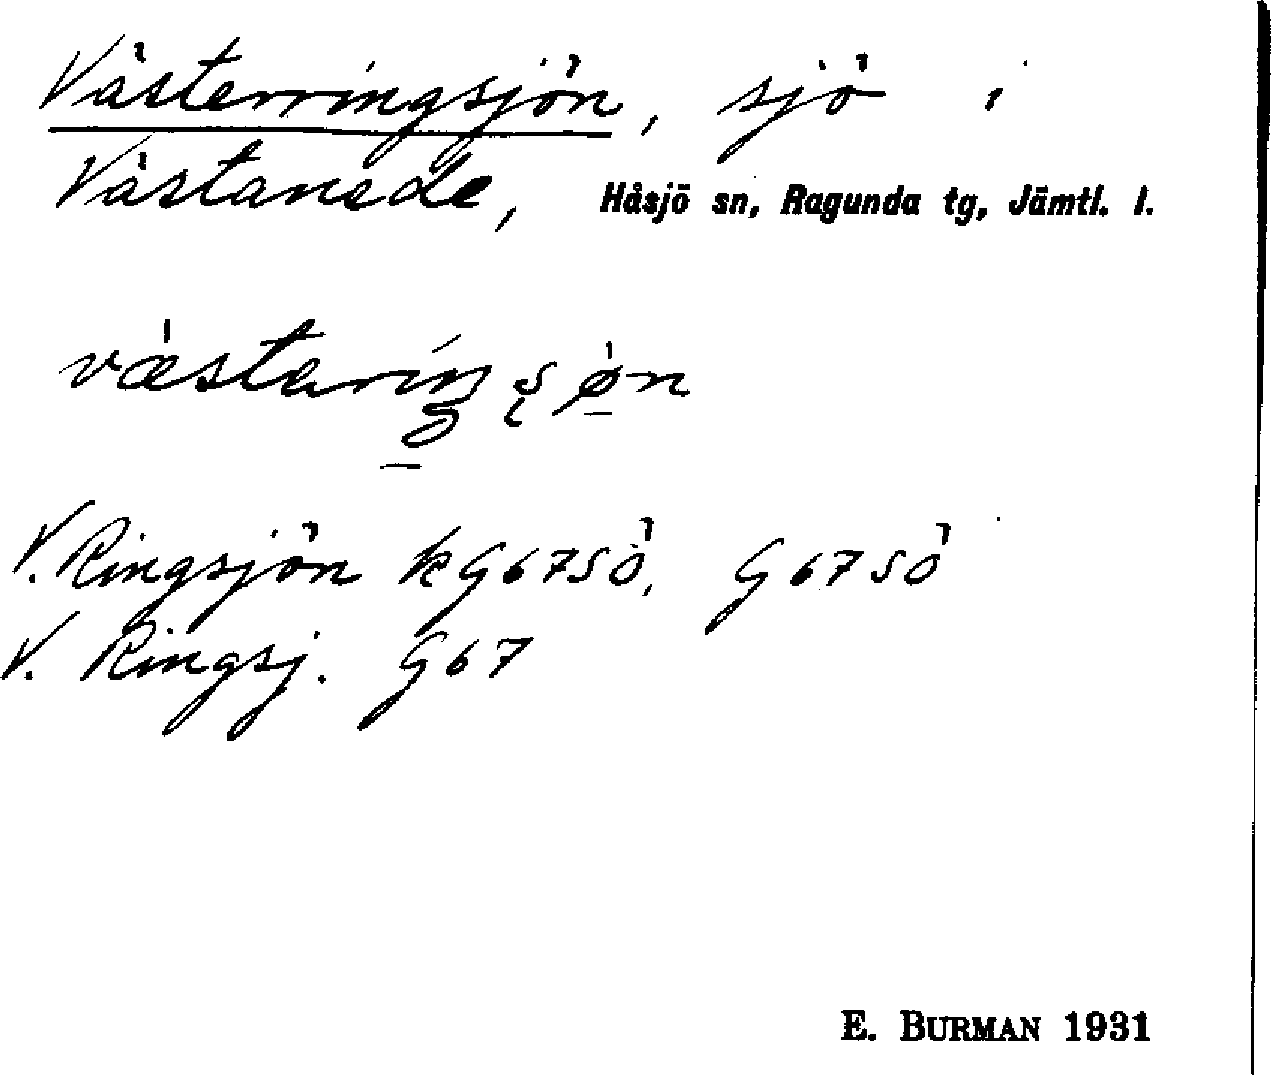 Västerringsjön, sjö i
Västanede, Håsjö sn, Ragunda tg, Jämtl. l.
V. Ringsjön k G67SÖ, G67SÖ
V. Ringsj. G67
E. BURMAN 1931